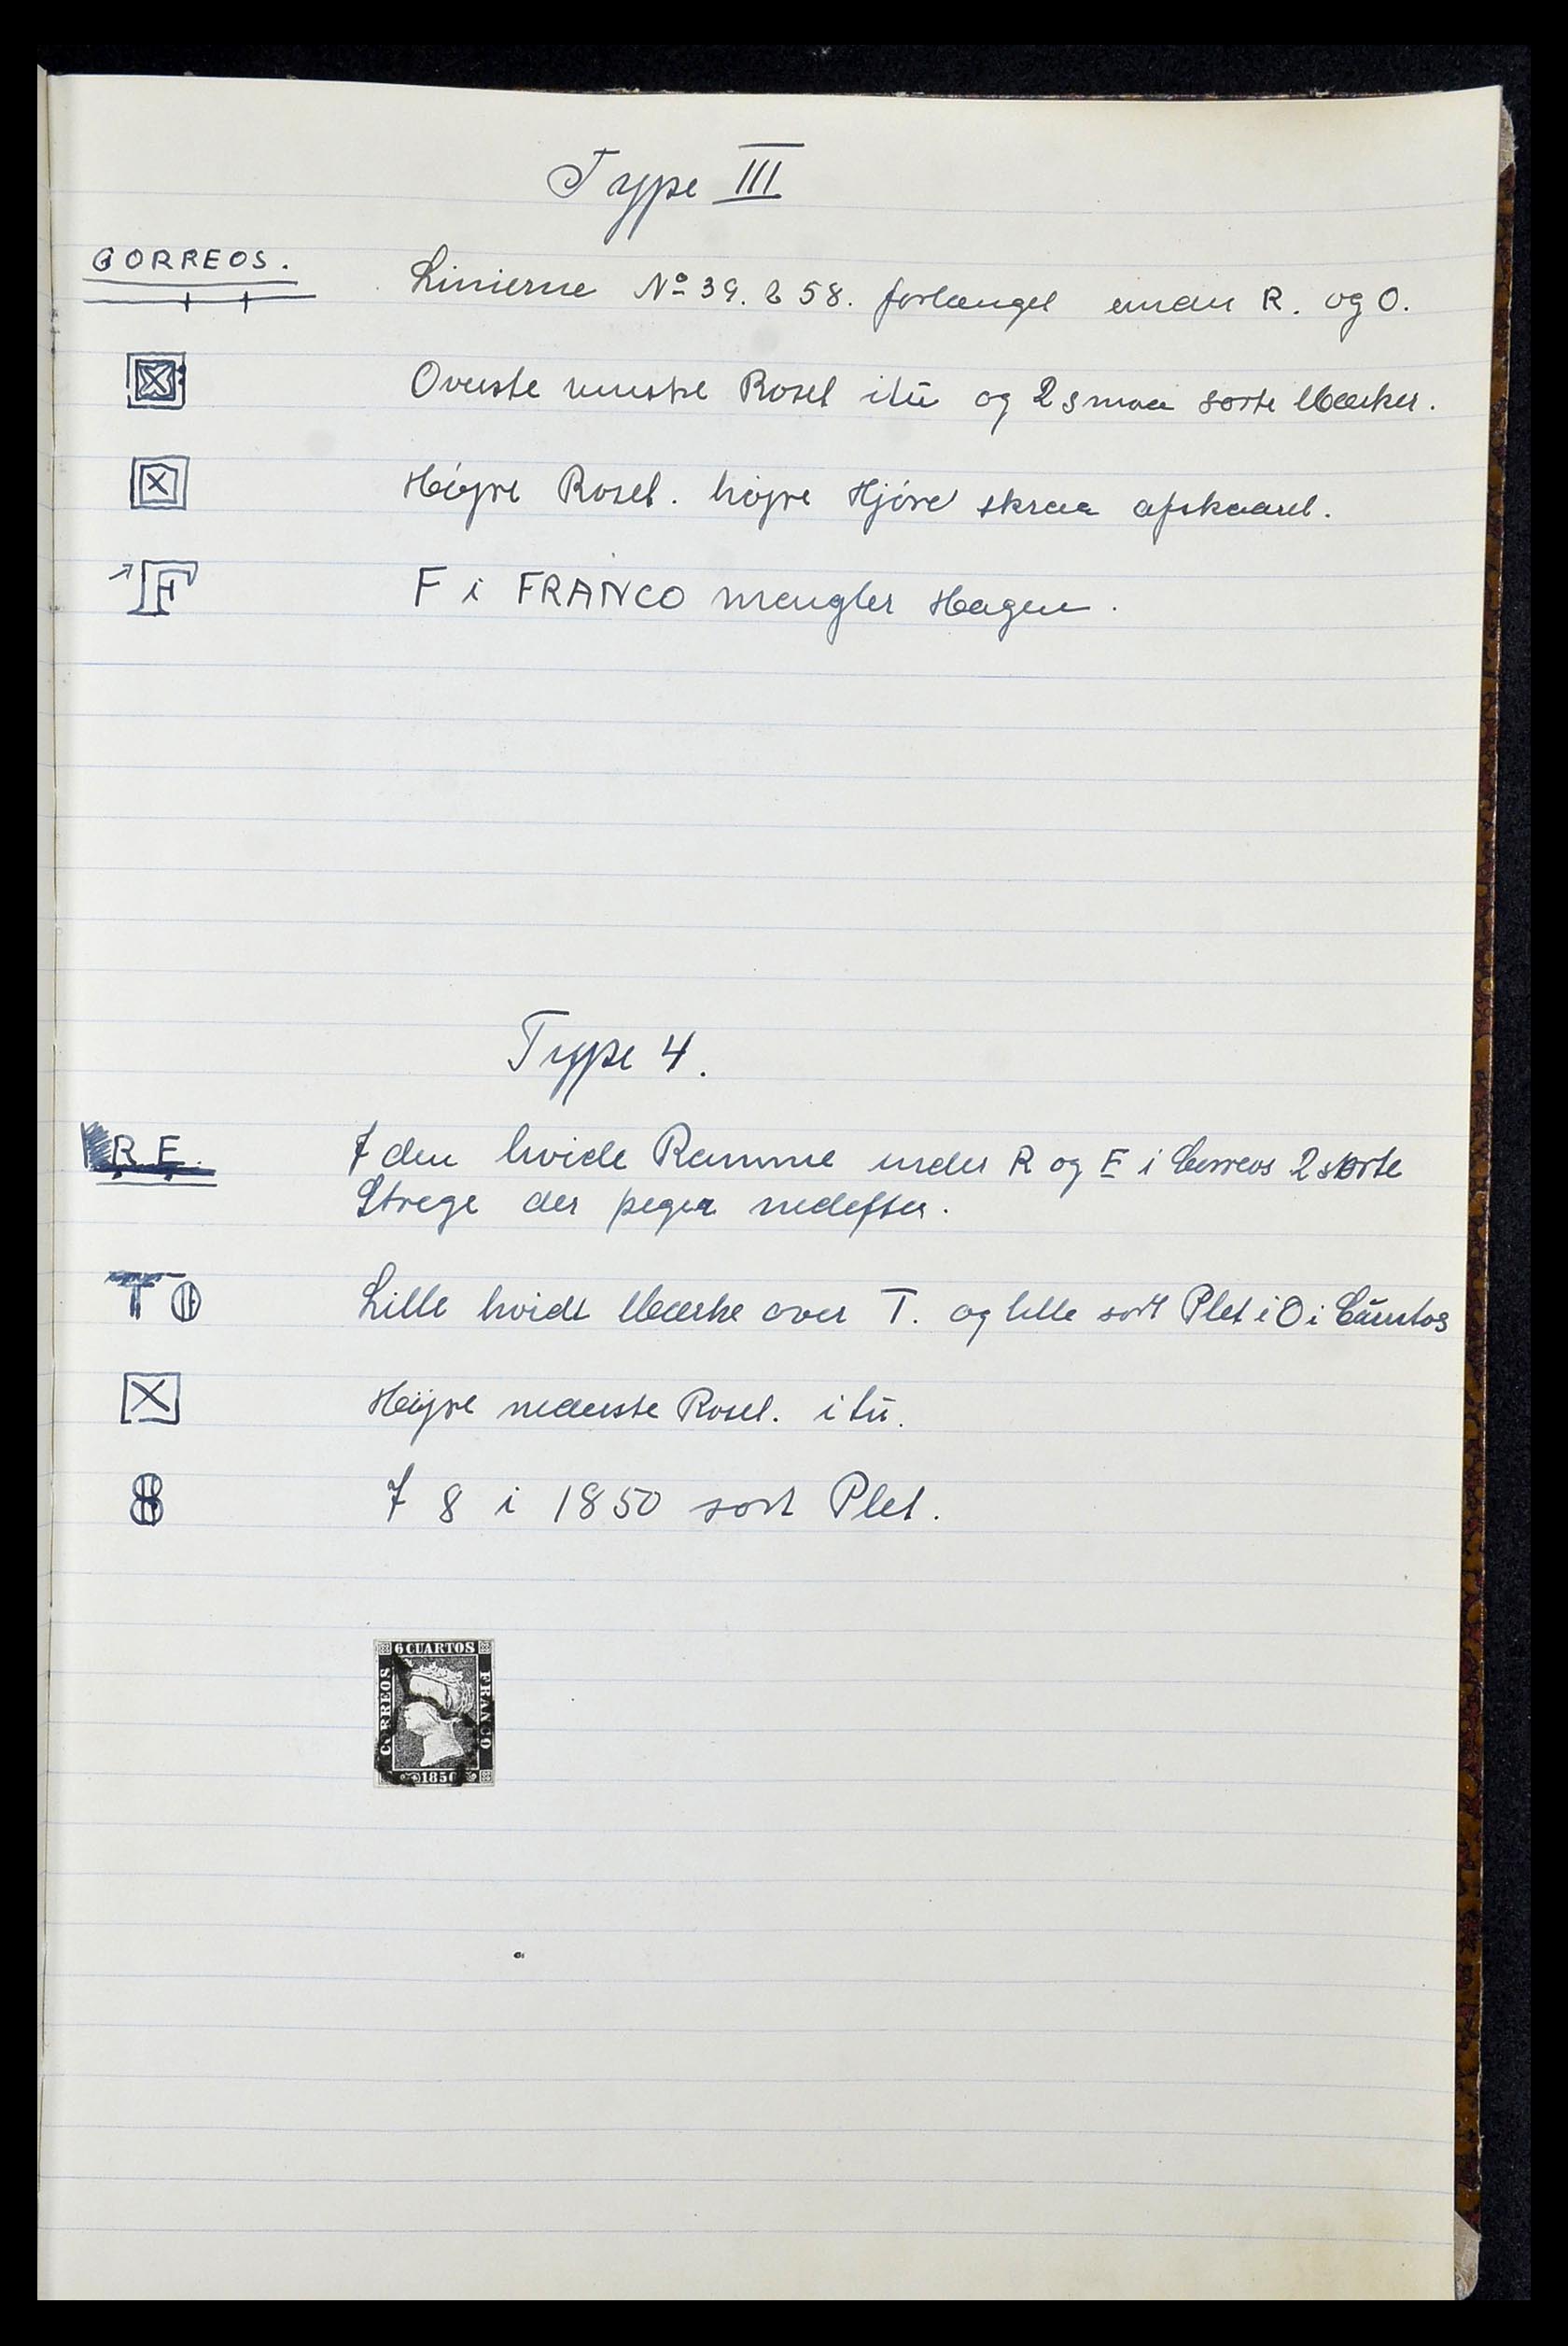 Type III
CORREOS.
Linierne No 39. & 58. forlænget under R. og O.
Øverste venstre Roset itu og 2 smaa sorte Mærker.
Højre Roset. højre Hjørne skraa afskaaret.
F
F i FRANCO mangler Hagen.
Type 4.
R E.
I den hvide Ramme under R og E i Correos 2 sorte
Strege der peger nedefter.
T O
Lille hvidt Mærke over T. og lille sort Plet i O i Cuartos
Højre nederste Roset. itu.
8
I 8 i 1850 sort Plet.
6 CUARTOS
CORREOS
FRANCO
1850